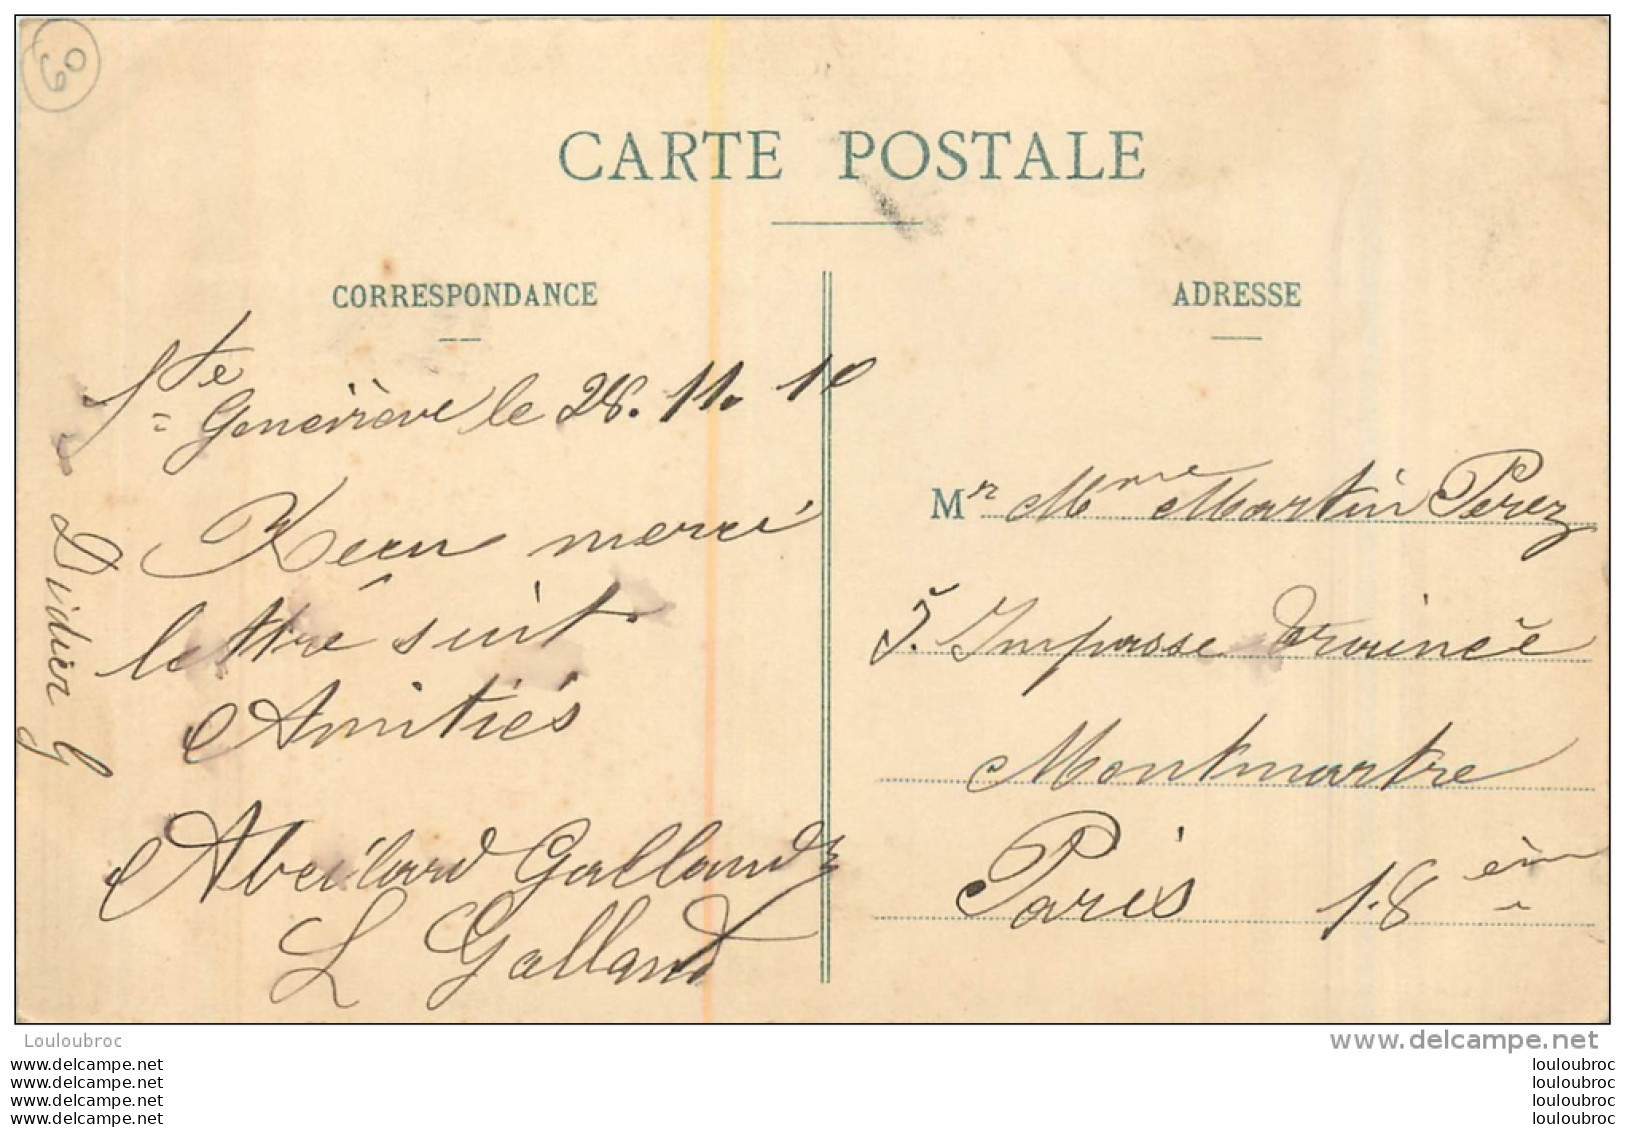 09
CARTE POSTALE
CORRESPONDANCE
Ste Geneviève le 28.11.10
Reçu merci
lettre suit
Amitiés
Abeilard Galland
L Galland
Didier G
ADRESSE
Mr Mme Martin Perez
5. Impasse Trainée
Montmartre
Paris 18 ème
Louloubroc
www.delcampe.net
www.delcampe.net
www.delcampe.net
www.delcampe.net
www.delcampe.net
louloubroc
louloubroc
louloubroc
louloubroc